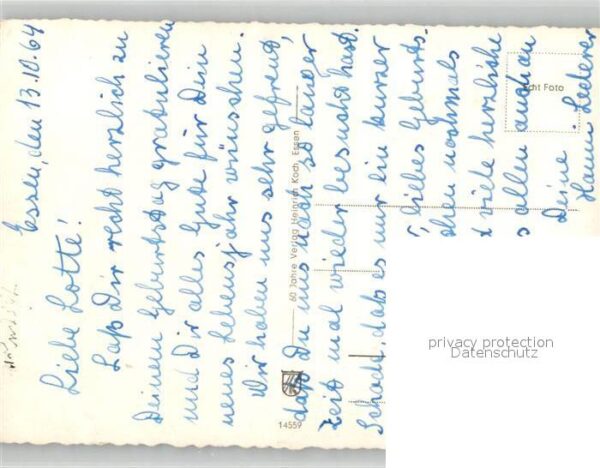 Essen, den 13.10.64
Liebe Lotte!
Laß Dir recht herzlich zu
Deinem Geburtstag gratulieren
und Dir alles Gute für Dein
neues Lebensjahr wünschen.
Wir haben uns sehr gefreut,
daß Du uns nach so langer
Zeit mal wieder besucht hast.
Schade, daß es nur ein kurzer
liebes Geburts-
chen nochmals
viele herzliche
s allen auch an
Deine
Hanni Lederer
60 Jahre Verlag Heinrich Koch, Essen
14559
Echt Foto
privacy protection
Datenschutz